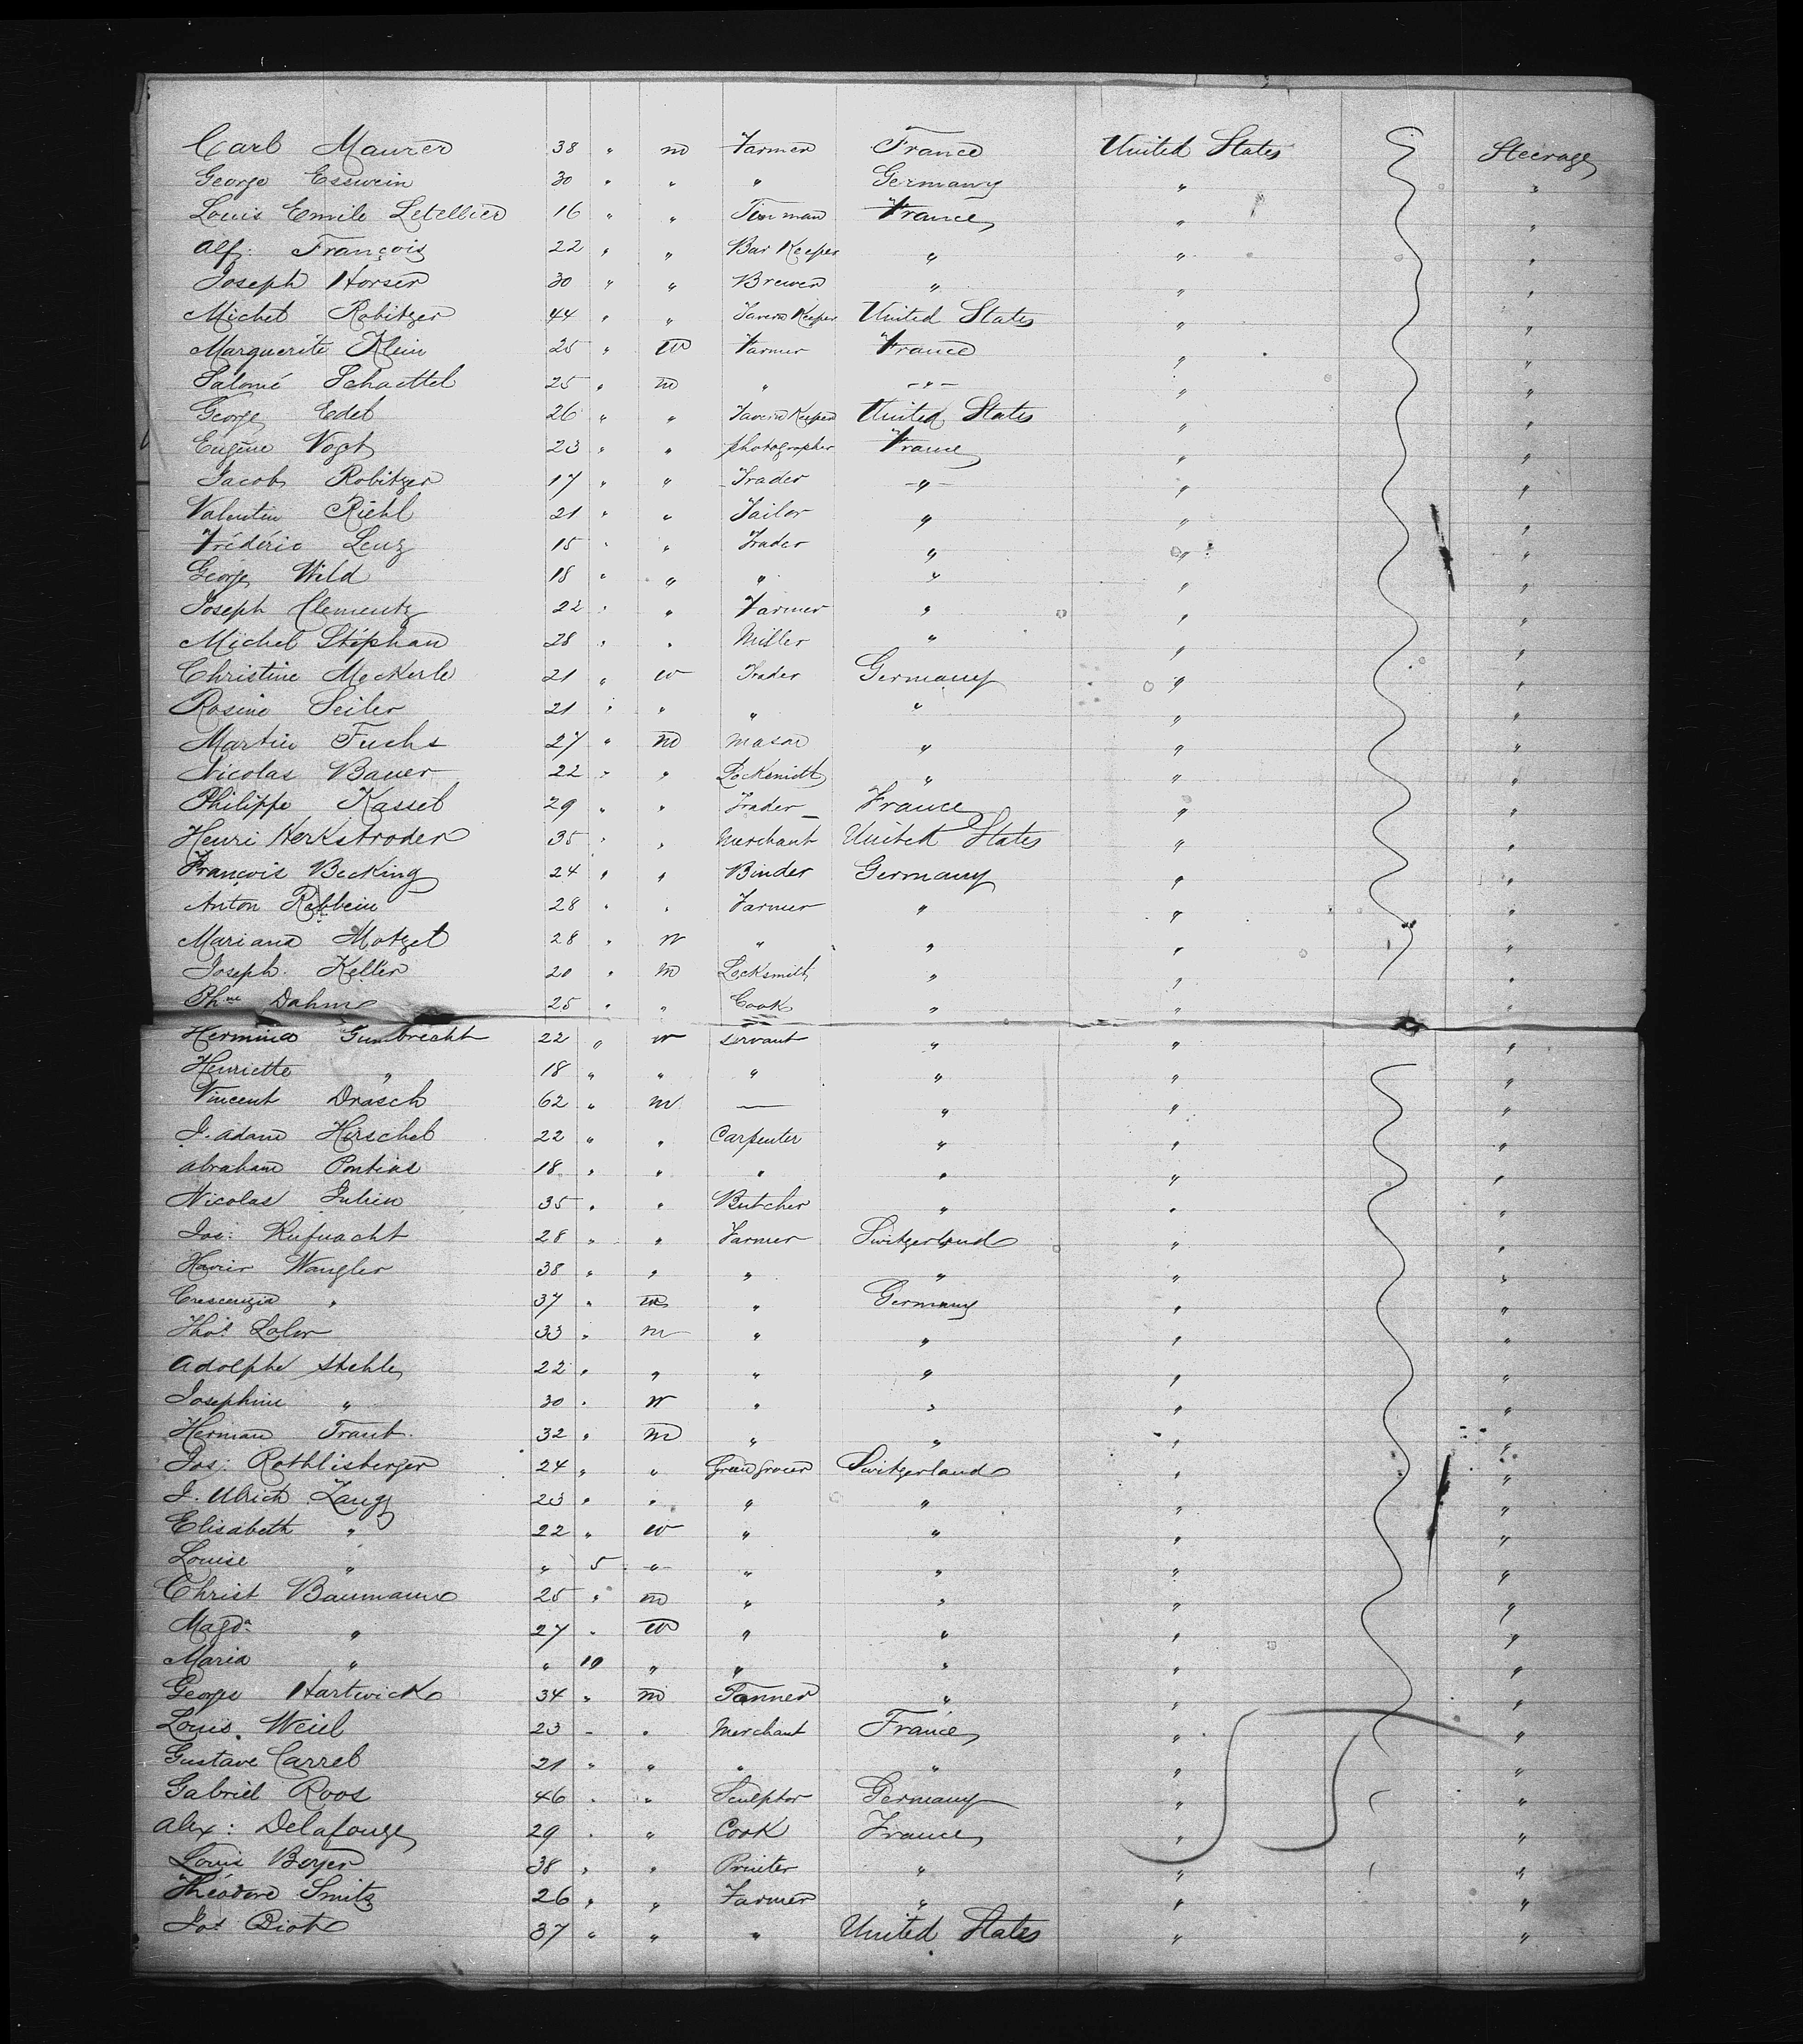 Carl Maurer 38 " m Farmer France United States Steerage
George Esswein 30 " " " Germany " "
Louis Emile Letellier 16 " " Tinman France " "
Alf: François 22 " " Bar Keeper " " "
Joseph Horser 30 " " Brewer " " "
Michel Robitzer 44 " " Tavern Keeper United States " "
Marguerite Klein 25 " w Farmer France " "
Salomé Schaettel 25 " m " -"- " "
George Edel 26 " " Tavern Keeper United States " "
Eugène Vogt 23 " " photographer France " "
Jacob Robitzer 17 " " Trader -"- " "
Valentin Riehl 21 " " Tailor " " "
Frédéric Lenz 15 " " Trader " " "
George Wild 18 " " " " " "
Joseph Clementz 22 " " Farmer " " "
Michel Stéphan 28 " " Miller " " "
Christine Meckerle 21 " w Trader Germany " "
Rosine Seiler 21 " " " " " "
Martin Fuchs 27 " m mason " " "
Nicolas Bauer 22 " " Locksmith " " "
Philippe Kassel 29 " " Trader France " "
Henri Herkstroder 35 " " Merchant United States " "
François Becking 24 " " Binder Germany " "
Anton Rebbein 28 " " Farmer " " "
Mariana Motzet 28 " w " " " "
Joseph Keller 20 " m Locksmith " " "
Phne Dahm 25 " " Cook " " "
Hermina Gumbrecht 22 " w servant " " "
Henriette " 18 " " " " " "
Vincent Drasch 62 " m — " " "
J. Adam Hirschel 22 " " Carpenter " " "
Abraham Pontius 18 " " " " " "
Nicolas Julien 35 " " Butcher " " "
Jos: Rufnacht 28 " " Farmer Switzerland " "
Xavier Wangler 38 " " " " " "
Crescenzia " 37 " w " Germany " "
Thos Lalor 33 " m " " " "
Adolphe Stehle 22 " " " " " "
Josephine " 30 " w " " " "
Herman Traut 32 " m " " " "
Jos: Rothlisberger 24 " " Green grocer Switzerland " "
J. Ulrich Zaugg 23 " " " " " "
Elisabeth " 22 " w " " " "
Louise " " 5 -"- " " " "
Christ Baumann 25 " m " " " "
Magda " 27 " w " " " "
Maria " " 10 " " " " "
George Hartwick 34 " m Tanner " " "
Louis Weiel 23 - " Merchant France " "
Gustave Carrel 21 " " " " " "
Gabriel Roos 46 " " Sculptor Germany " "
Alex: Delafouge 29 " " Cook France " "
Louis Boyer 38 " " Printer " " "
Théodore Smitz 26 " " Farmer " " "
Jos Biot 37 " " " United States " "